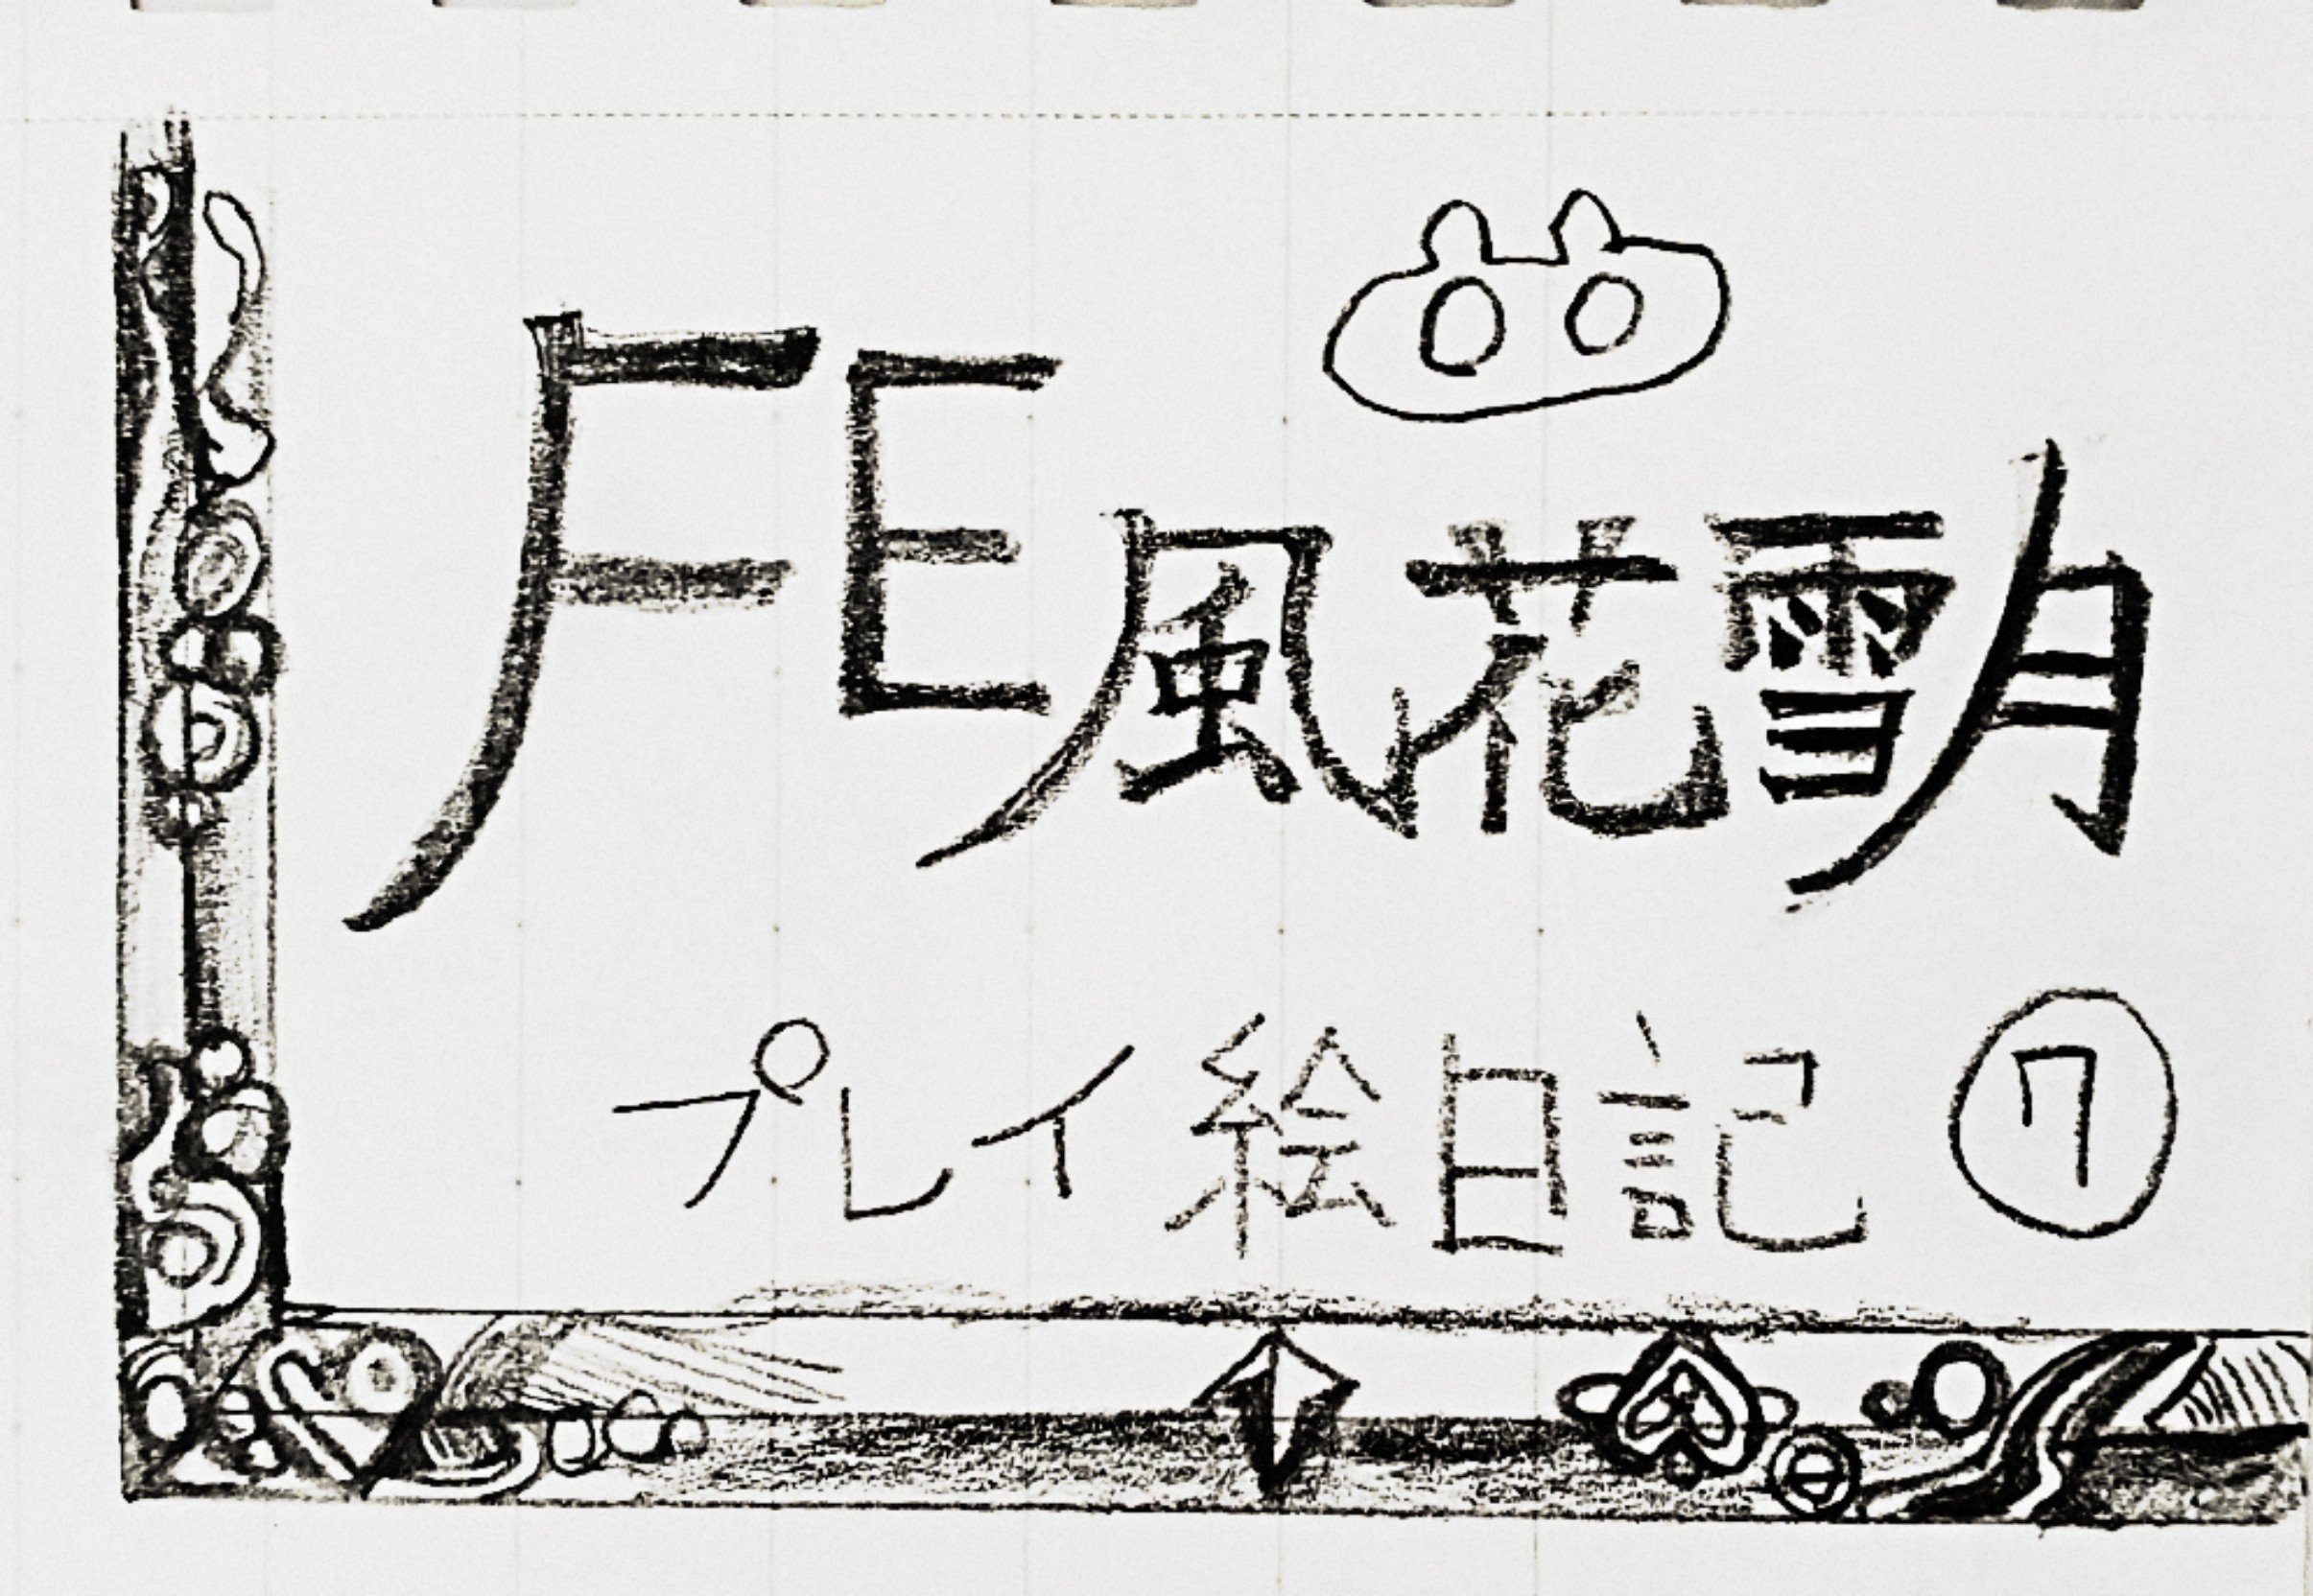 FE風花雪月
プレイ絵日記 ⑦